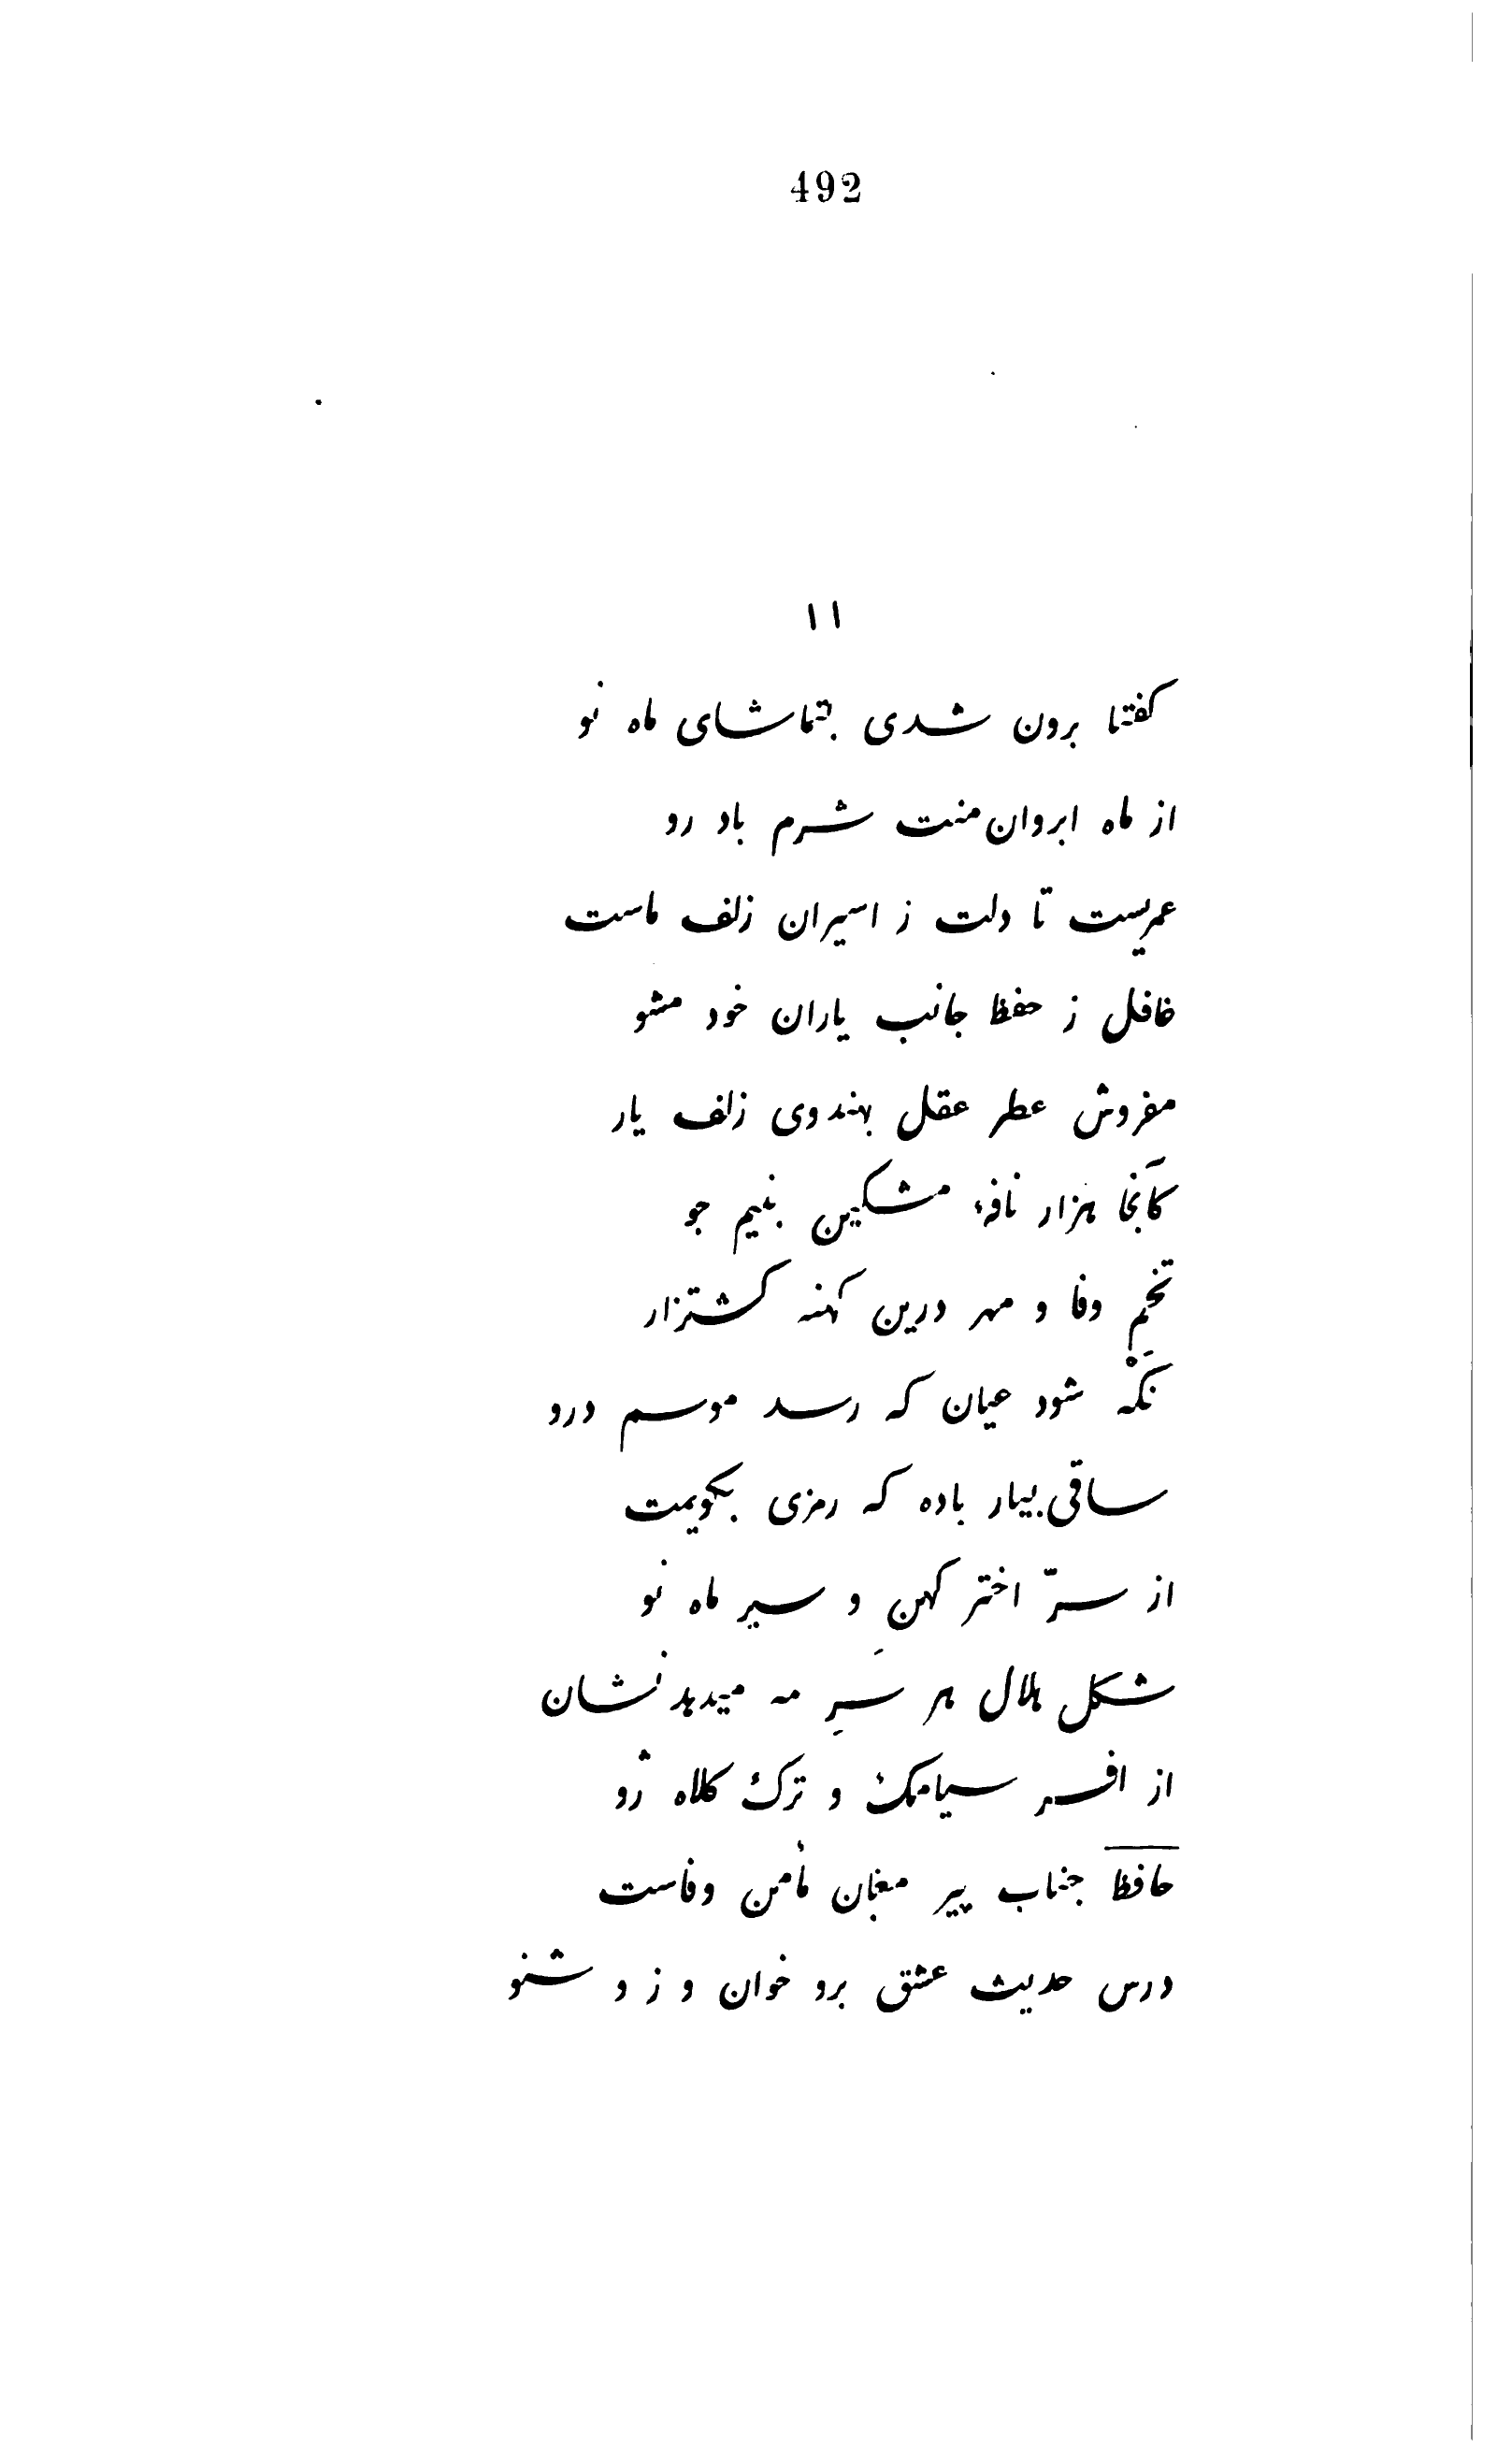 492
١١
كفتا برون شدی بتماشای ماه نو
از ماه ابروان منت شرم باد رو
عمریست تا دلت ز اسیران زلف ماست
غافل ز حفظ جانب یاران خود مشو
مفروش عطر عقل بهندوی زلف یار
كآنجا هزار نافهٔ مشكین بنیم جو
تخمِ وفا و مهر درین كهنه كشتزار
آنگه شود عیان كه رسد موسم درو
ساقی بیار باده كه رمزی بكویمت
از سرّ اختر كهن و سیر ماه نو
شكل هلال هر سَرِ مه میدهد نشان
از افسر سیامك و ترك كلاه ژو
حافظ جناب پیر مغان مأمن وفاست
درس حدیث عشق برو خوان و ز و شنو